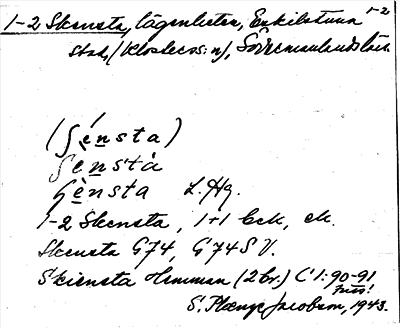 1-2 Skensta, lägenheter, Eskilstuna 1-2
stad, (Klosters:n), Södermanlands län
(ʃènsta)
ʃènsta
ʃènsta L. Hg.
1-2 Skensta, 1+1 Eck, ek.
Skensta G74, G74SV.
Skiensta Hemman (2 br.) C1:90-91
S. Plænge Jacobson, 1943.